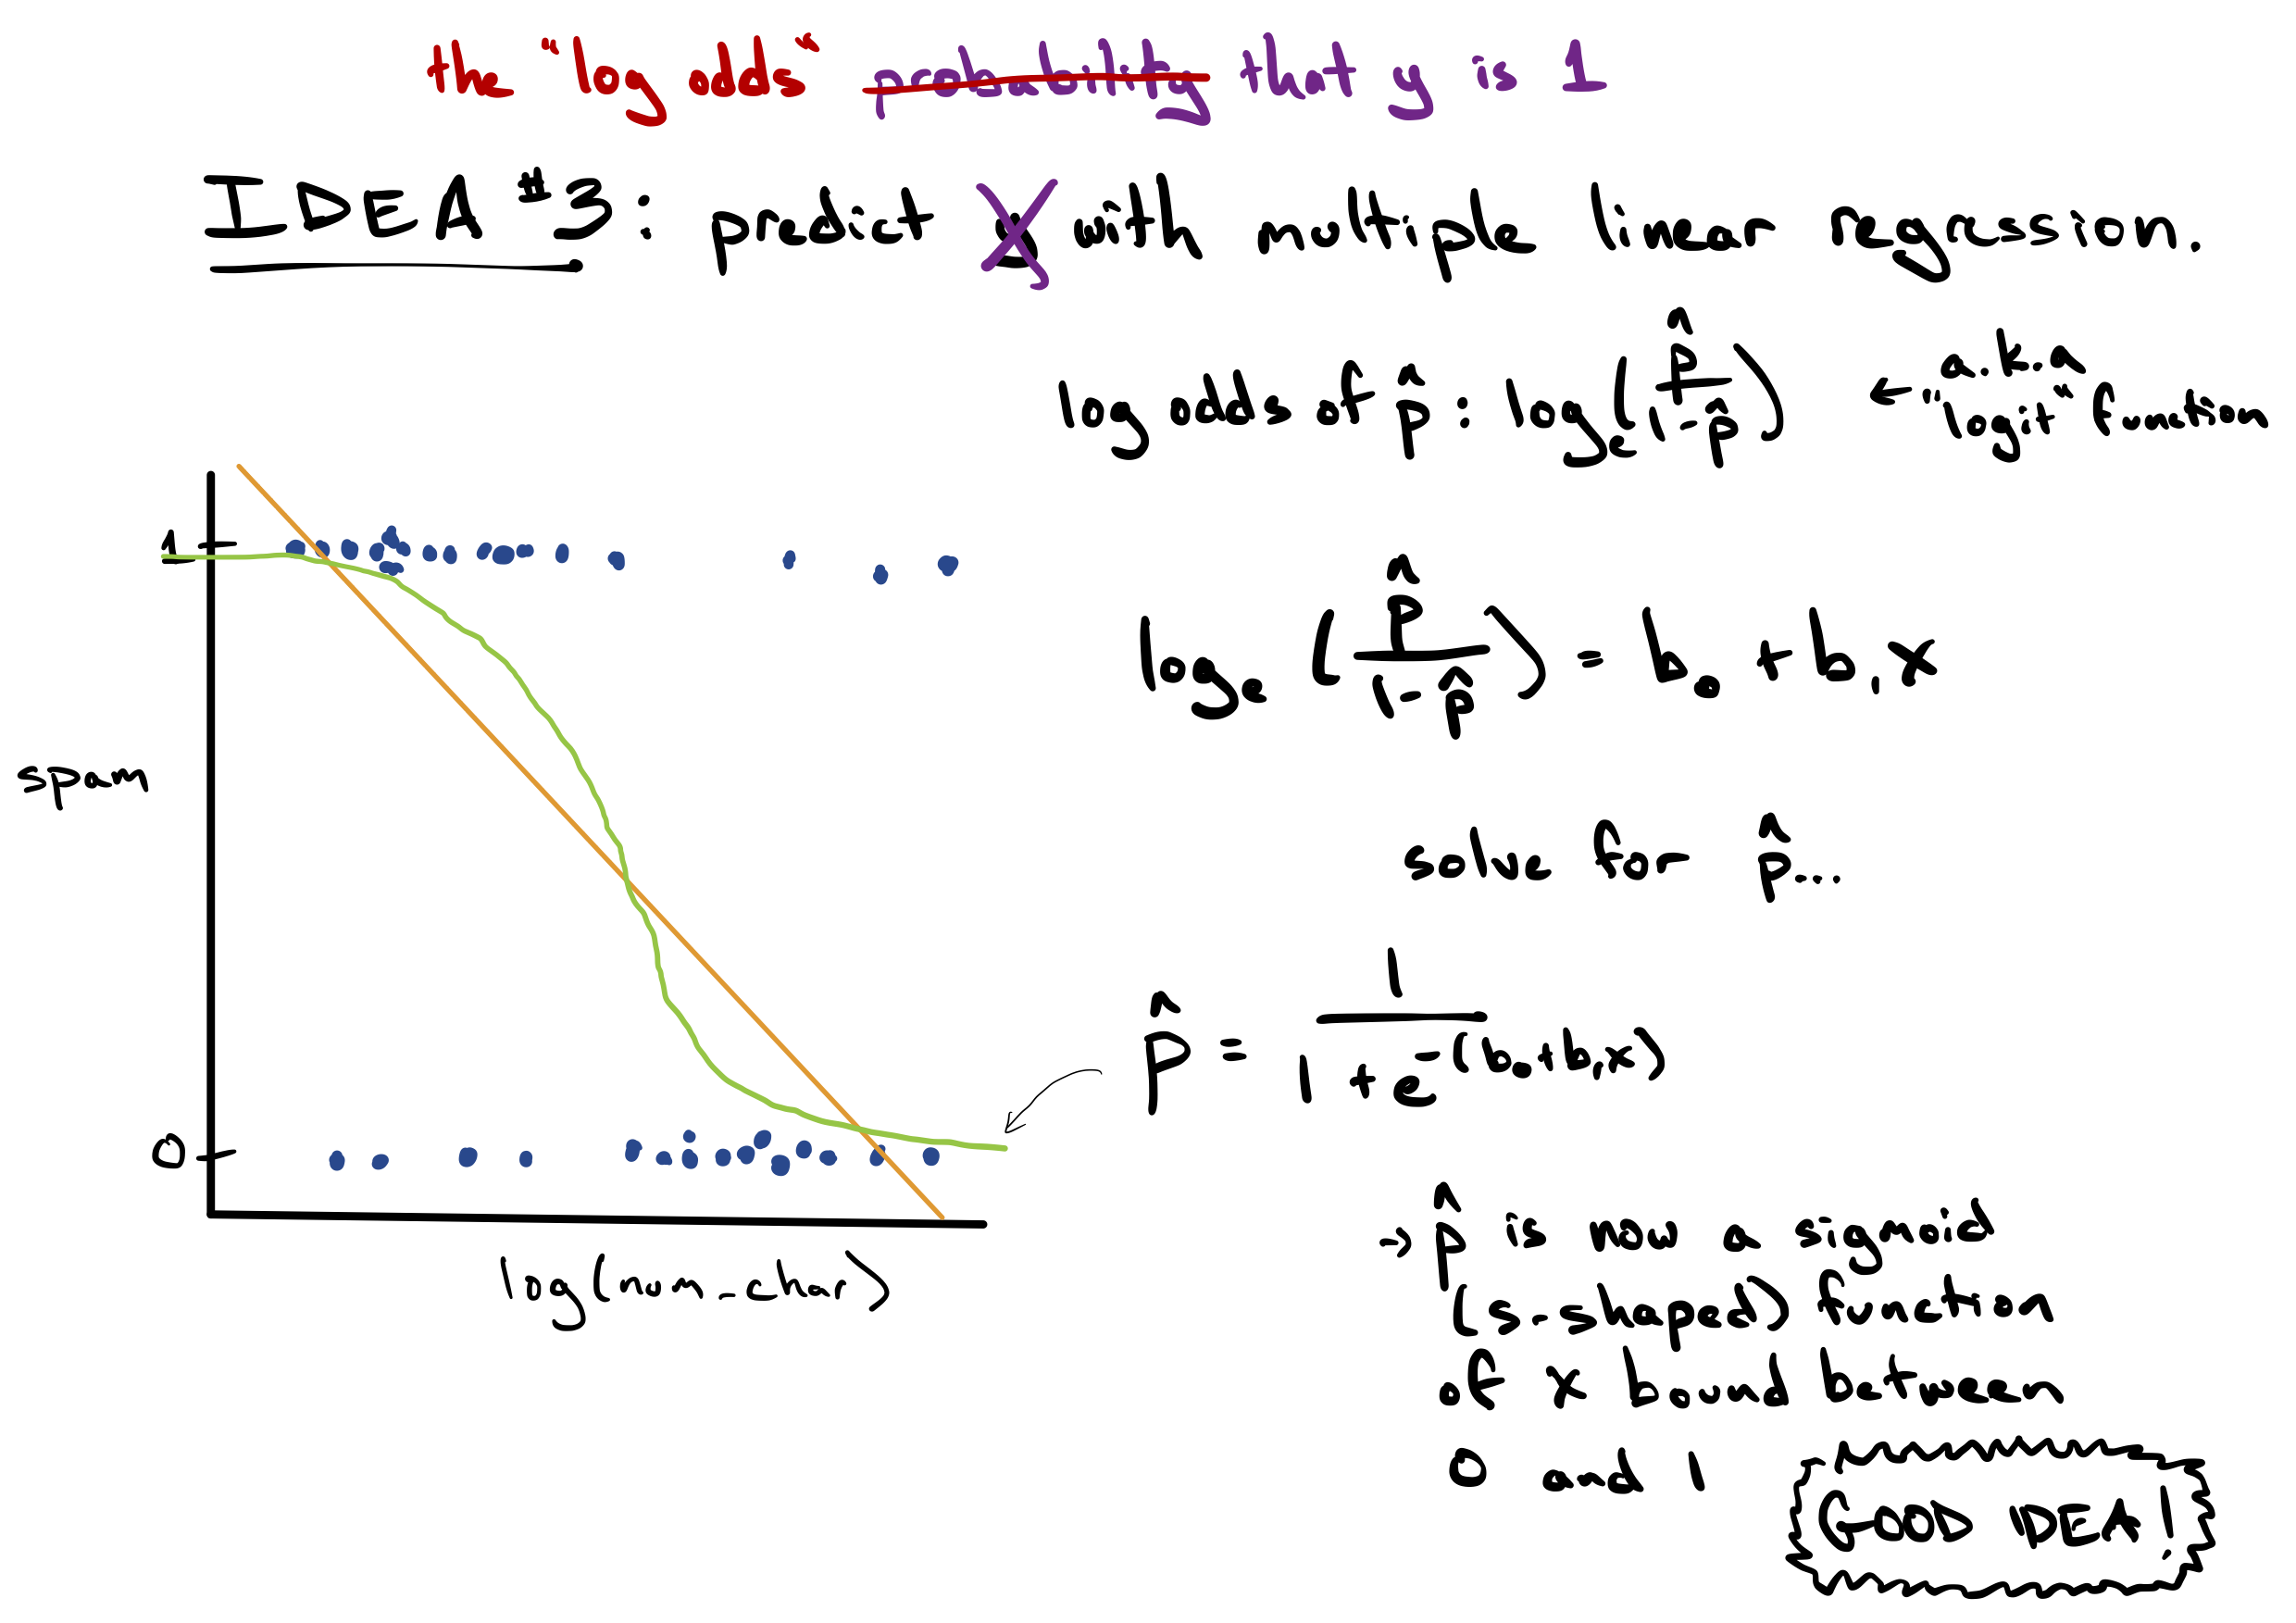 the "log odds" probability that y is 1
IDEA #3: Predict y with multiple linear regression.
log odds of p̂ : logₑ(p̂/1-p̂) ← a.k.a "logit" function
1
logₑ(p̂/1-p̂) = b₀ + b₁x
spam
solve for p̂...
p̂ = 1/1 + e^-(b₀+b₁x)
0
log(num_char)
→ p̂ is now a sigmoid
(s-shaped) function
of x bound between
0 and 1
GOOD IDEA!